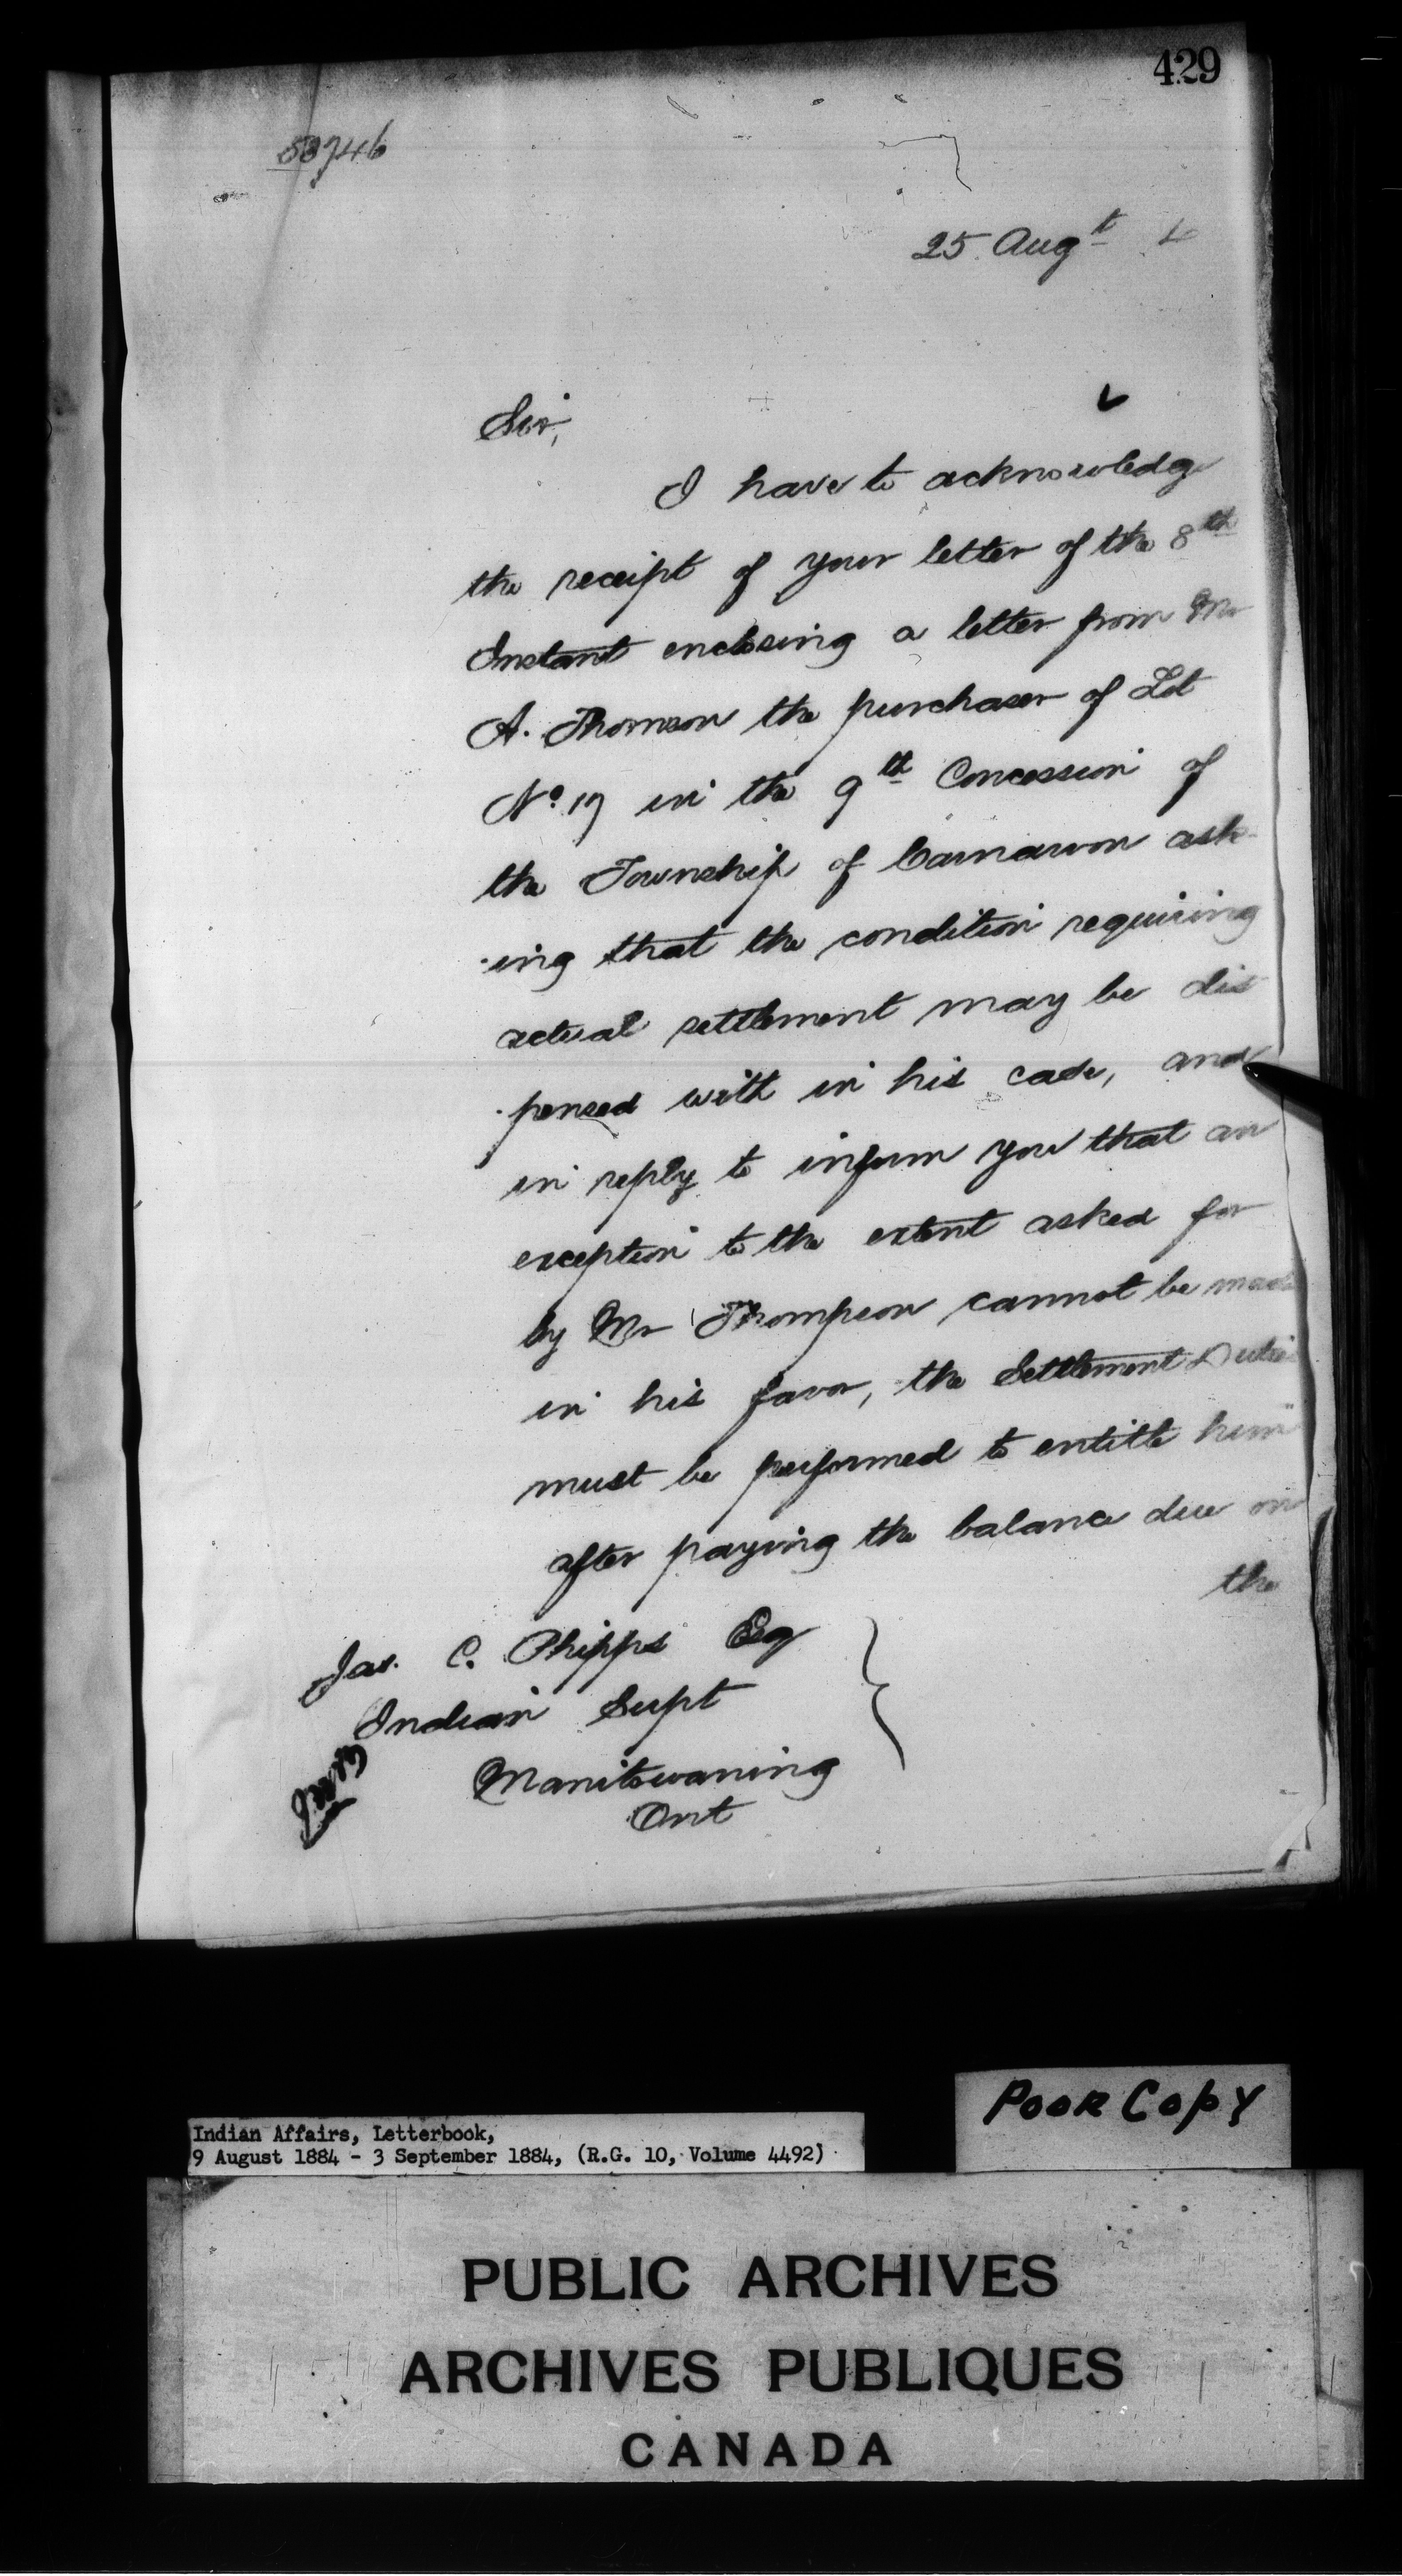 429
53746
25 Augt 4
Sir,
I have to acknowledge
the receipt of your letter of the 8th
Instant enclosing a letter from Mr
A. Thomson the purchaser of Lot
No. 17 in the 9th Concession of
the Township of Carnarvon ask-
-ing that the condition requiring
actual settlement may be dis
-pensed with in his case, and
in reply to inform you that an
exception to the extent asked for
by Mr Thompson cannot be made
in his favor, the Settlement Duties
must be performed to entitle him
after paying the balance due on
the
Jas. C. Phipps Esq
Indian Supt
Manitowaning
Ont
Poor Copy
Indian Affairs, Letterbook,
9 August 1884 - 3 September 1884, (R.G. 10, Volume 4492)
PUBLIC ARCHIVES
ARCHIVES PUBLIQUES
CANADA